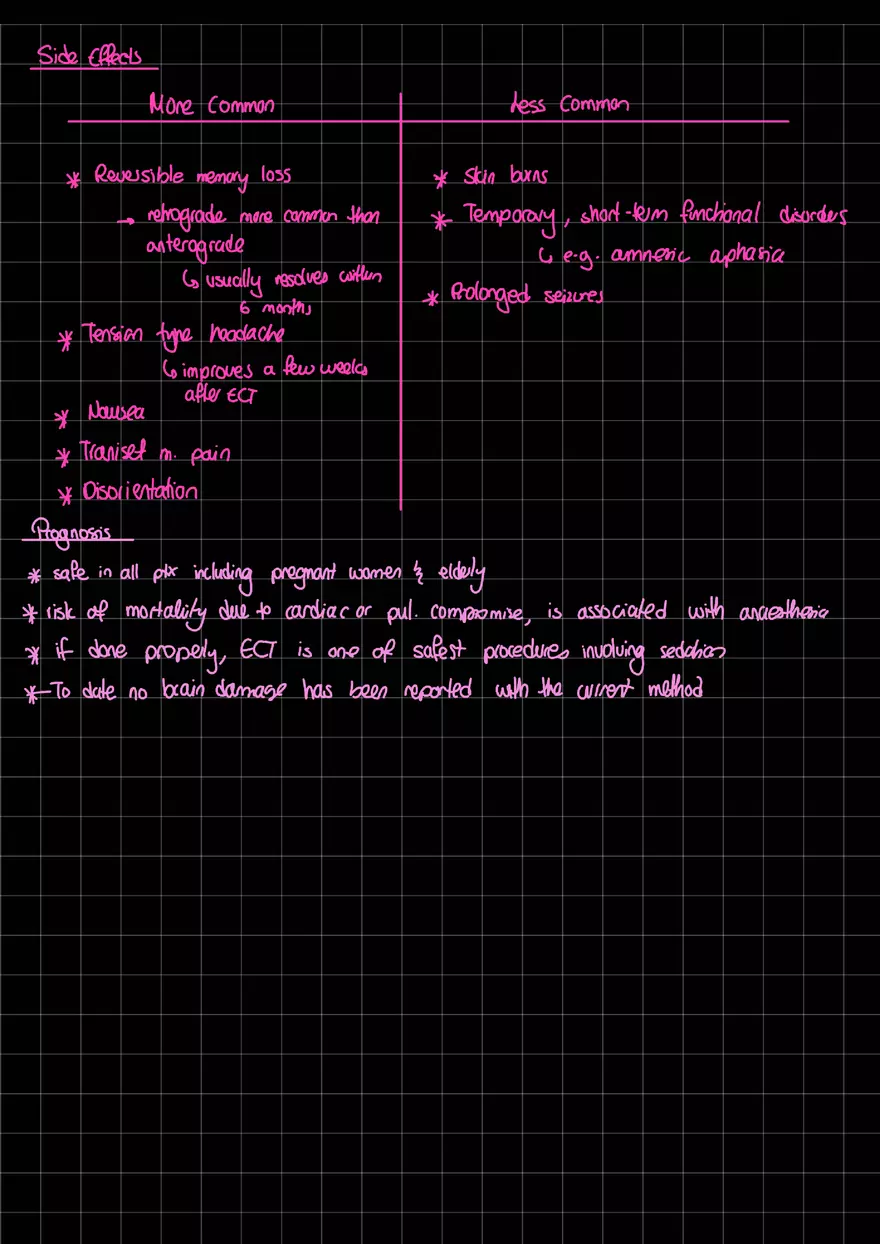 Side Effects
More Common
Less Common
* Reversible memory loss
→ retrograde more common than
anterograde
↳ usually resolves within
6 months
* Tension type headache
↳ improves a few weeks
after ECT
* Nausea
* Traniset m. pain
* Disorientation
* Skin burns
* Temporary, short-term functional disorders
↳ e.g. amnesic aphasia
* Prolonged seizures
Prognosis
* safe in all ptx including pregnant women & elderly
* risk of mortality due to cardiac or pul. compromise, is associated with anaesthesia
* if done properly, ECT is one of safest procedures involving sedation
* To date no brain damage has been reported with the current method